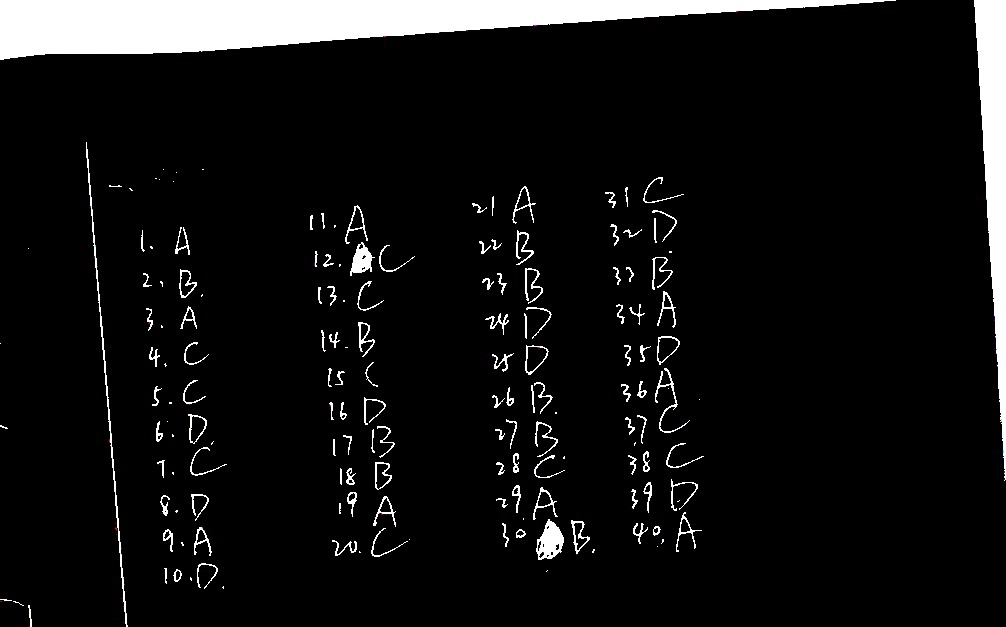 一、
1. A
2. B.
3. A
4. C
5. C
6. D.
7. C
8. D
9. A
10. D.
11. A
12. C
13. C
14. B
15 C
16 D
17 B
18 B
19 A
20. C
21 A
22 B
23 B
24 D
25 D
26 B.
27 B
28 C
29. A
30 B.
31 C
32 D
33 B
34 A
35 D
36 A
37 C
38 C
39 D
40. A